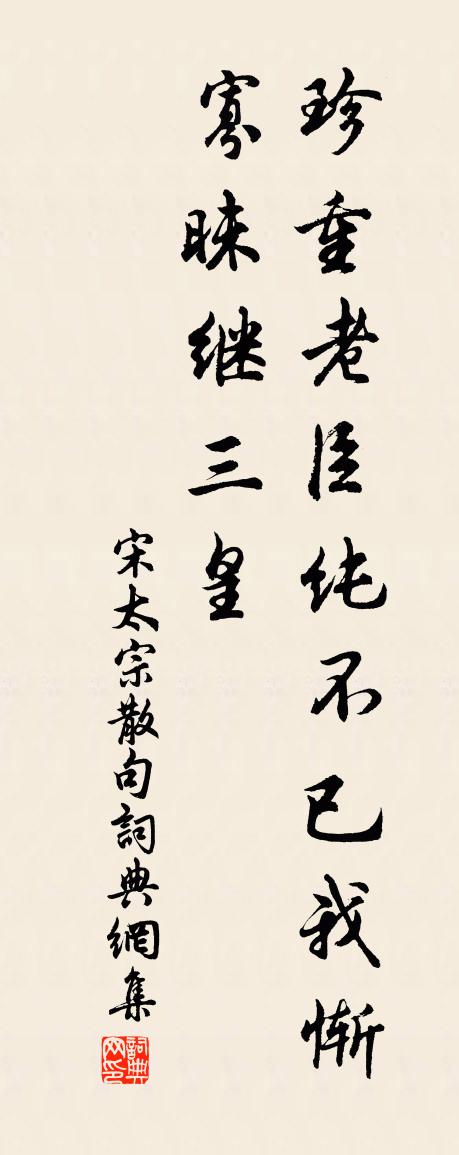 珍重老臣纯不已我惭
寡昧继三皇
宋太宗散句詞典網集
詞典网印